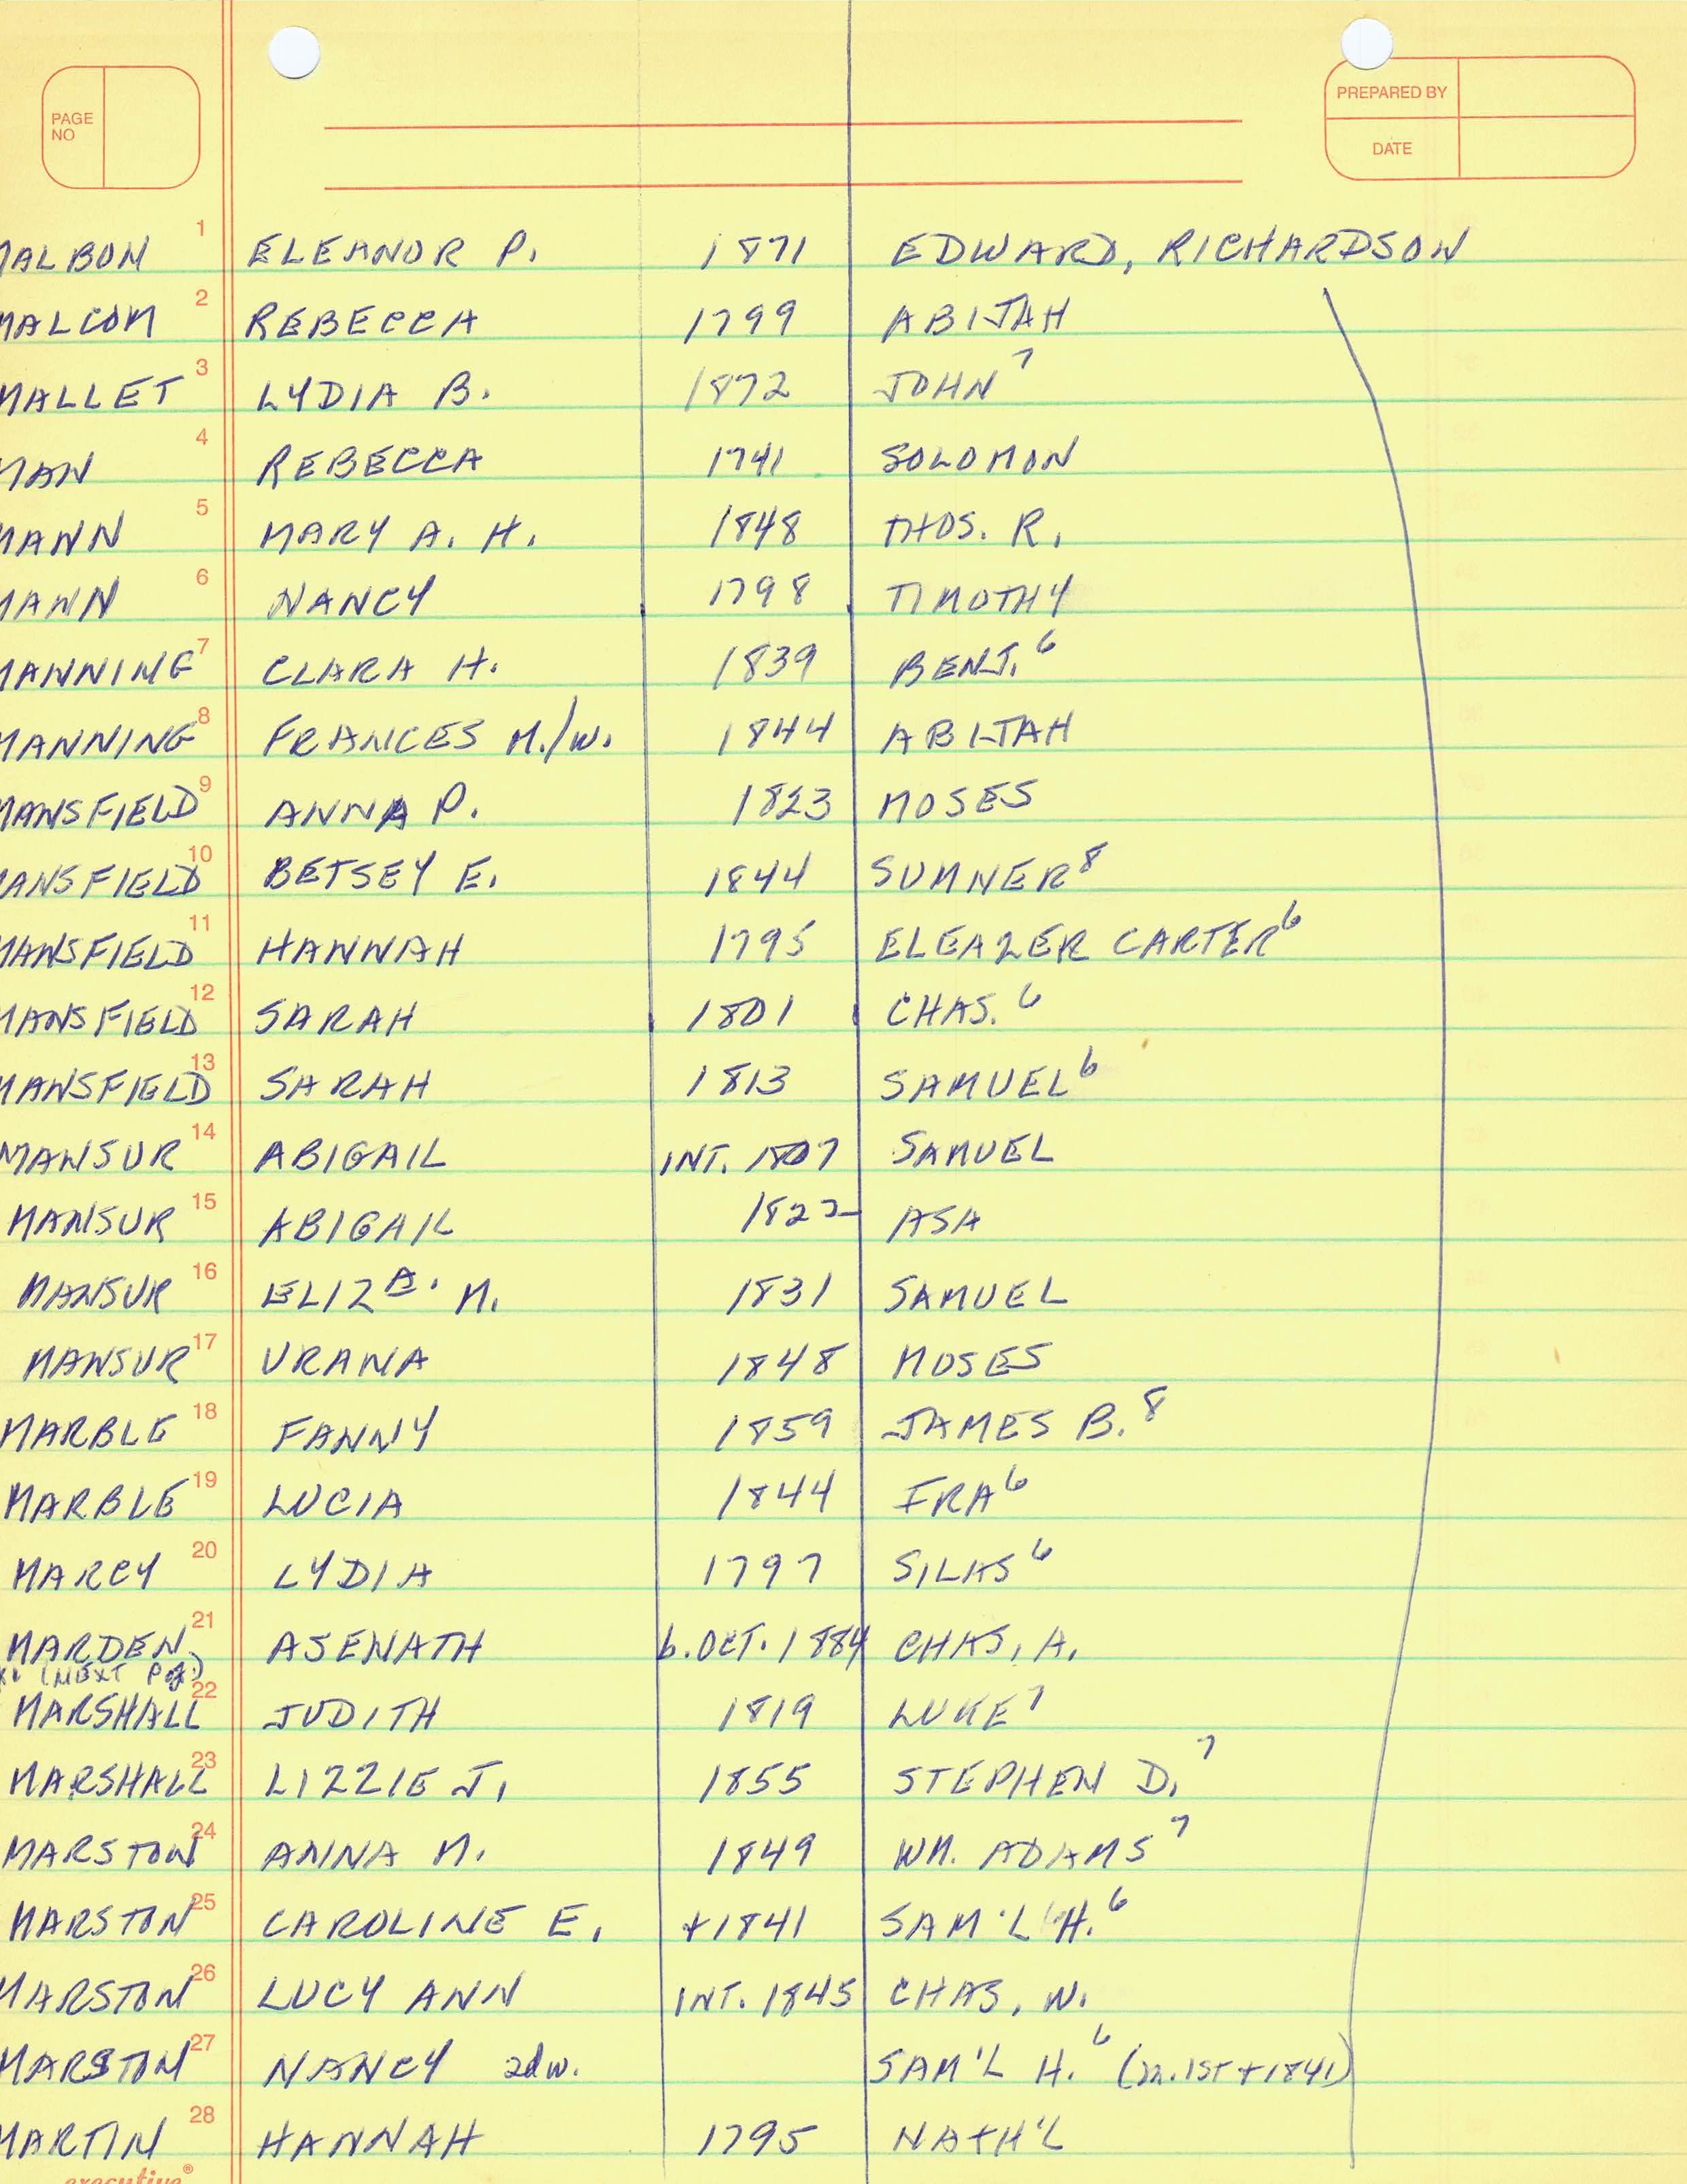 PAGE NO
PREPARED BY
DATE
1 MALBON ELEANOR P. 1871 EDWARD, RICHARDSON
2 MALCOM REBECCA 1799 ABIJAH
3 MALLET LYDIA B. 1872 JOHN 7
4 MAN REBECCA 1741 SOLOMON
5 MANN MARY A. H. 1848 THOS. R.
6 MANN NANCY 1798 TIMOTHY
7 MANNING CLARA H. 1839 BENJ. 6
8 MANNING FRANCES M./W. 1844 ABIJAH
9 MANSFIELD ANNA P. 1823 MOSES
10 MANSFIELD BETSEY E. 1844 SUMNER 8
11 MANSFIELD HANNAH 1795 ELEAZER CARTER 6
12 MANSFIELD SARAH 1801 CHAS. 6
13 MANSFIELD SARAH 1813 SAMUEL 6
14 MANSUR ABIGAIL INT. 1807 SAMUEL
15 MANSUR ABIGAIL 1822 ASA
16 MANSUR ELIZA. M. 1831 SAMUEL
17 MANSUR URANA 1848 MOSES
18 MARBLE FANNY 1859 JAMES B. 8
19 MARBLE LUCIA 1844 IRA 6
20 MARCY LYDIA 1797 SILAS 6
21 MARDEN ASENATH b. OCT. 1884 CHAS. A.
(NEXT Pg.)
22 MARSHALL JUDITH 1819 LUKE 7
23 MARSHALL LIZZIE J. 1855 STEPHEN D. 7
24 MARSTON ANNA M. 1849 WM. ADAMS 7
25 MARSTON CAROLINE E. +1841 SAM'L H. 6
26 MARSTON LUCY ANN INT. 1845 CHAS. N.
27 MARSTON NANCY 2d w. SAM'L H. 6 (m. 1ST +1841)
28 MARTIN HANNAH 1795 NATH'L
executive®